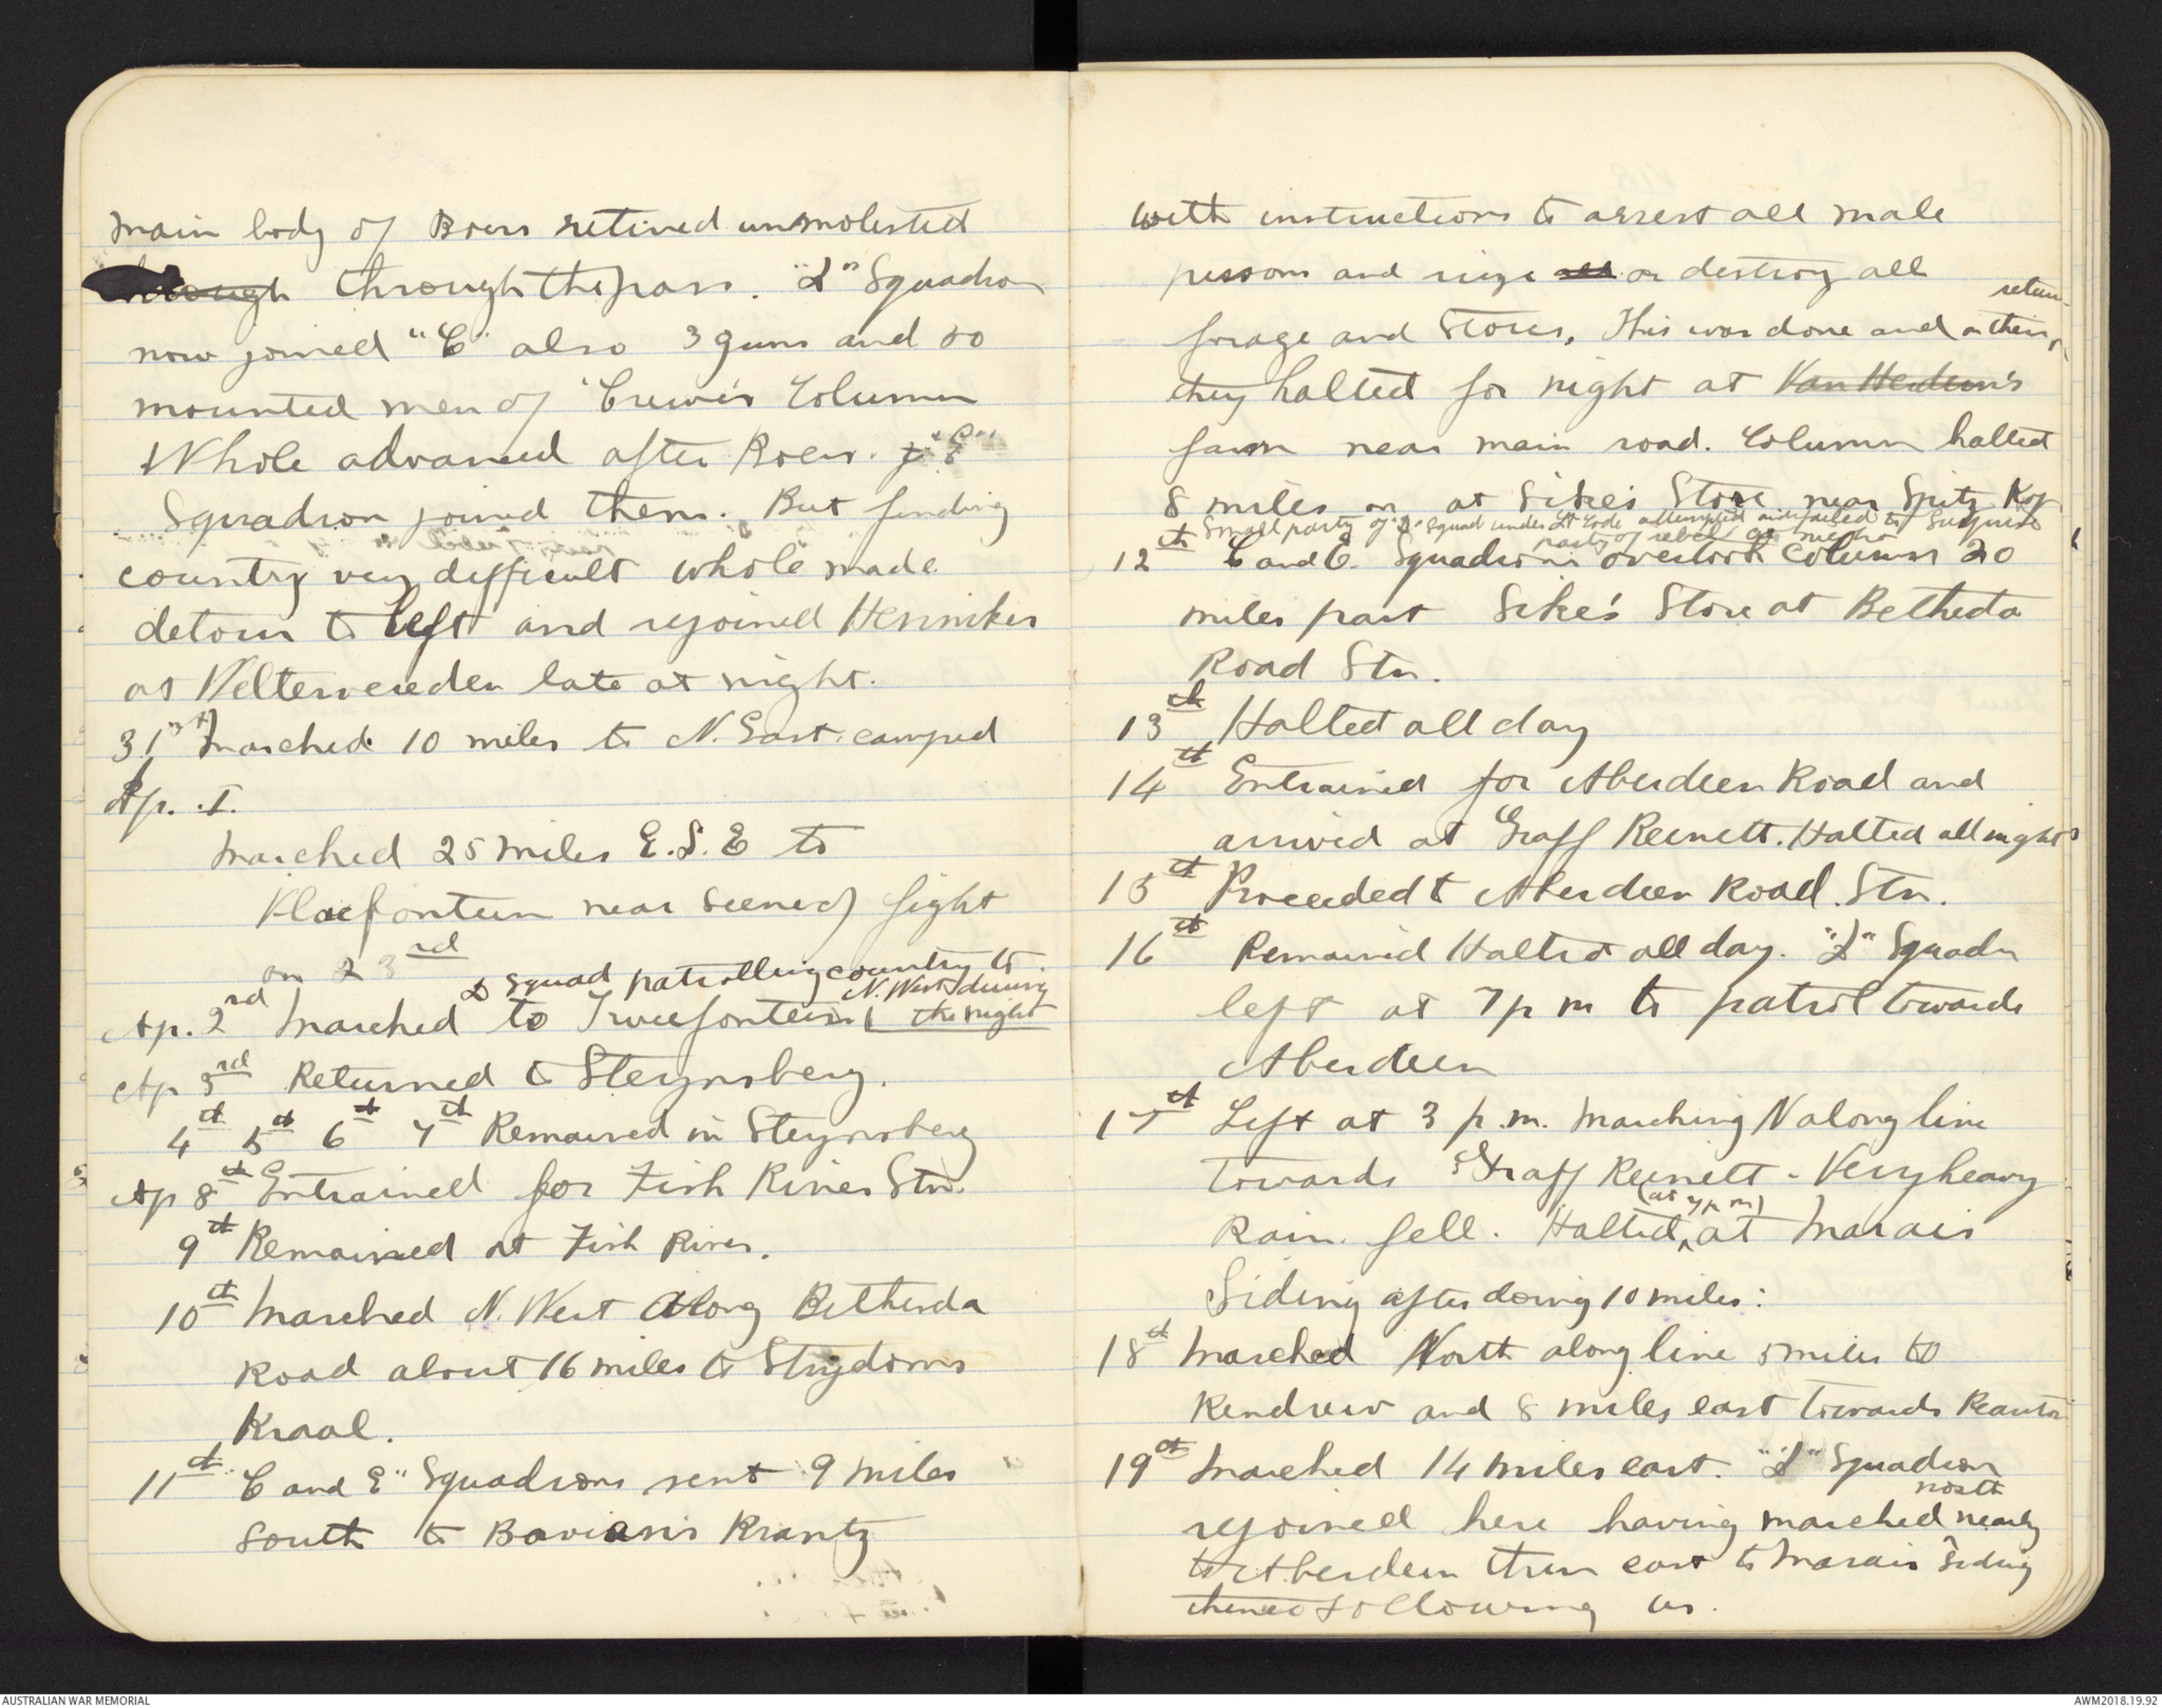 main body of Boers retired unmolested
through through the pass. "D" Squadron
now joined "C" also 3 guns and 50
mounted men of Crewe's Column
Whole advanced after Boers. "E"
Squadron joined them. But finding
country very difficult whole made
detour to left and rejoined Henniker
at Weltervereden late at night.
31st Marched 10 miles to N. East. camped
Ap. 1.
Marched 25 miles E.S.E to
Vlaefontein near scene of fight
on 23rd
D Squad patrolling country to
N. West during
Ap. 2rd Marched to Tweefontein the night
Ap 3rd Returned to Steynsberg.
4th 5th 6th 7th Remained in Steynsberg
Ap 8th Entrained for Fish River Stn.
9th Remained at Fish River.
10th Marched N. West along Bethesda
Road about 16 miles to Strydoms
Kraal.
11th "C and E" Squadrons sent 9 miles
south to Bavian's Krantz
with instructions to arrest all male
persons and seize all or destroy all
forage and Stores, This was done and on their return
they halted for night at Van Heerden's
farm near main road. Column halted
8 miles on at Sike's Store near Spitz Kop
Small party of "D" Squad under Lt attempted and failed to surprise
party of rebels at night
12th C and E. Squadrons overtook Column 20
miles past Sike's Store at Betheda
Road Stn.
13th Halted all day
14th Entrained for Aberdeen Road and
arrived at Graff Reinett. Halted all night
15th Proceeded to Aberdeen Road. Stn.
16th Remained Halted all day. "D" Squadn
left at 7 pm to patrol towards
Aberdeen
17th Left at 3 p.m. Marching N along line
towards Graff Reinett - Very heavy
Rain fell. Halted (at 7 pm) at Marais
Siding after doing 10 miles:
18th Marched North along line 5 miles to
Kendrew and 8 miles east towards
19th Marched 14 miles east. "D" Squadron
rejoined here having marched north nearly
to Aberdeen then east to Marais Siding
thence following us.
AUSTRALIAN WAR MEMORIAL
AWM2018.19.92